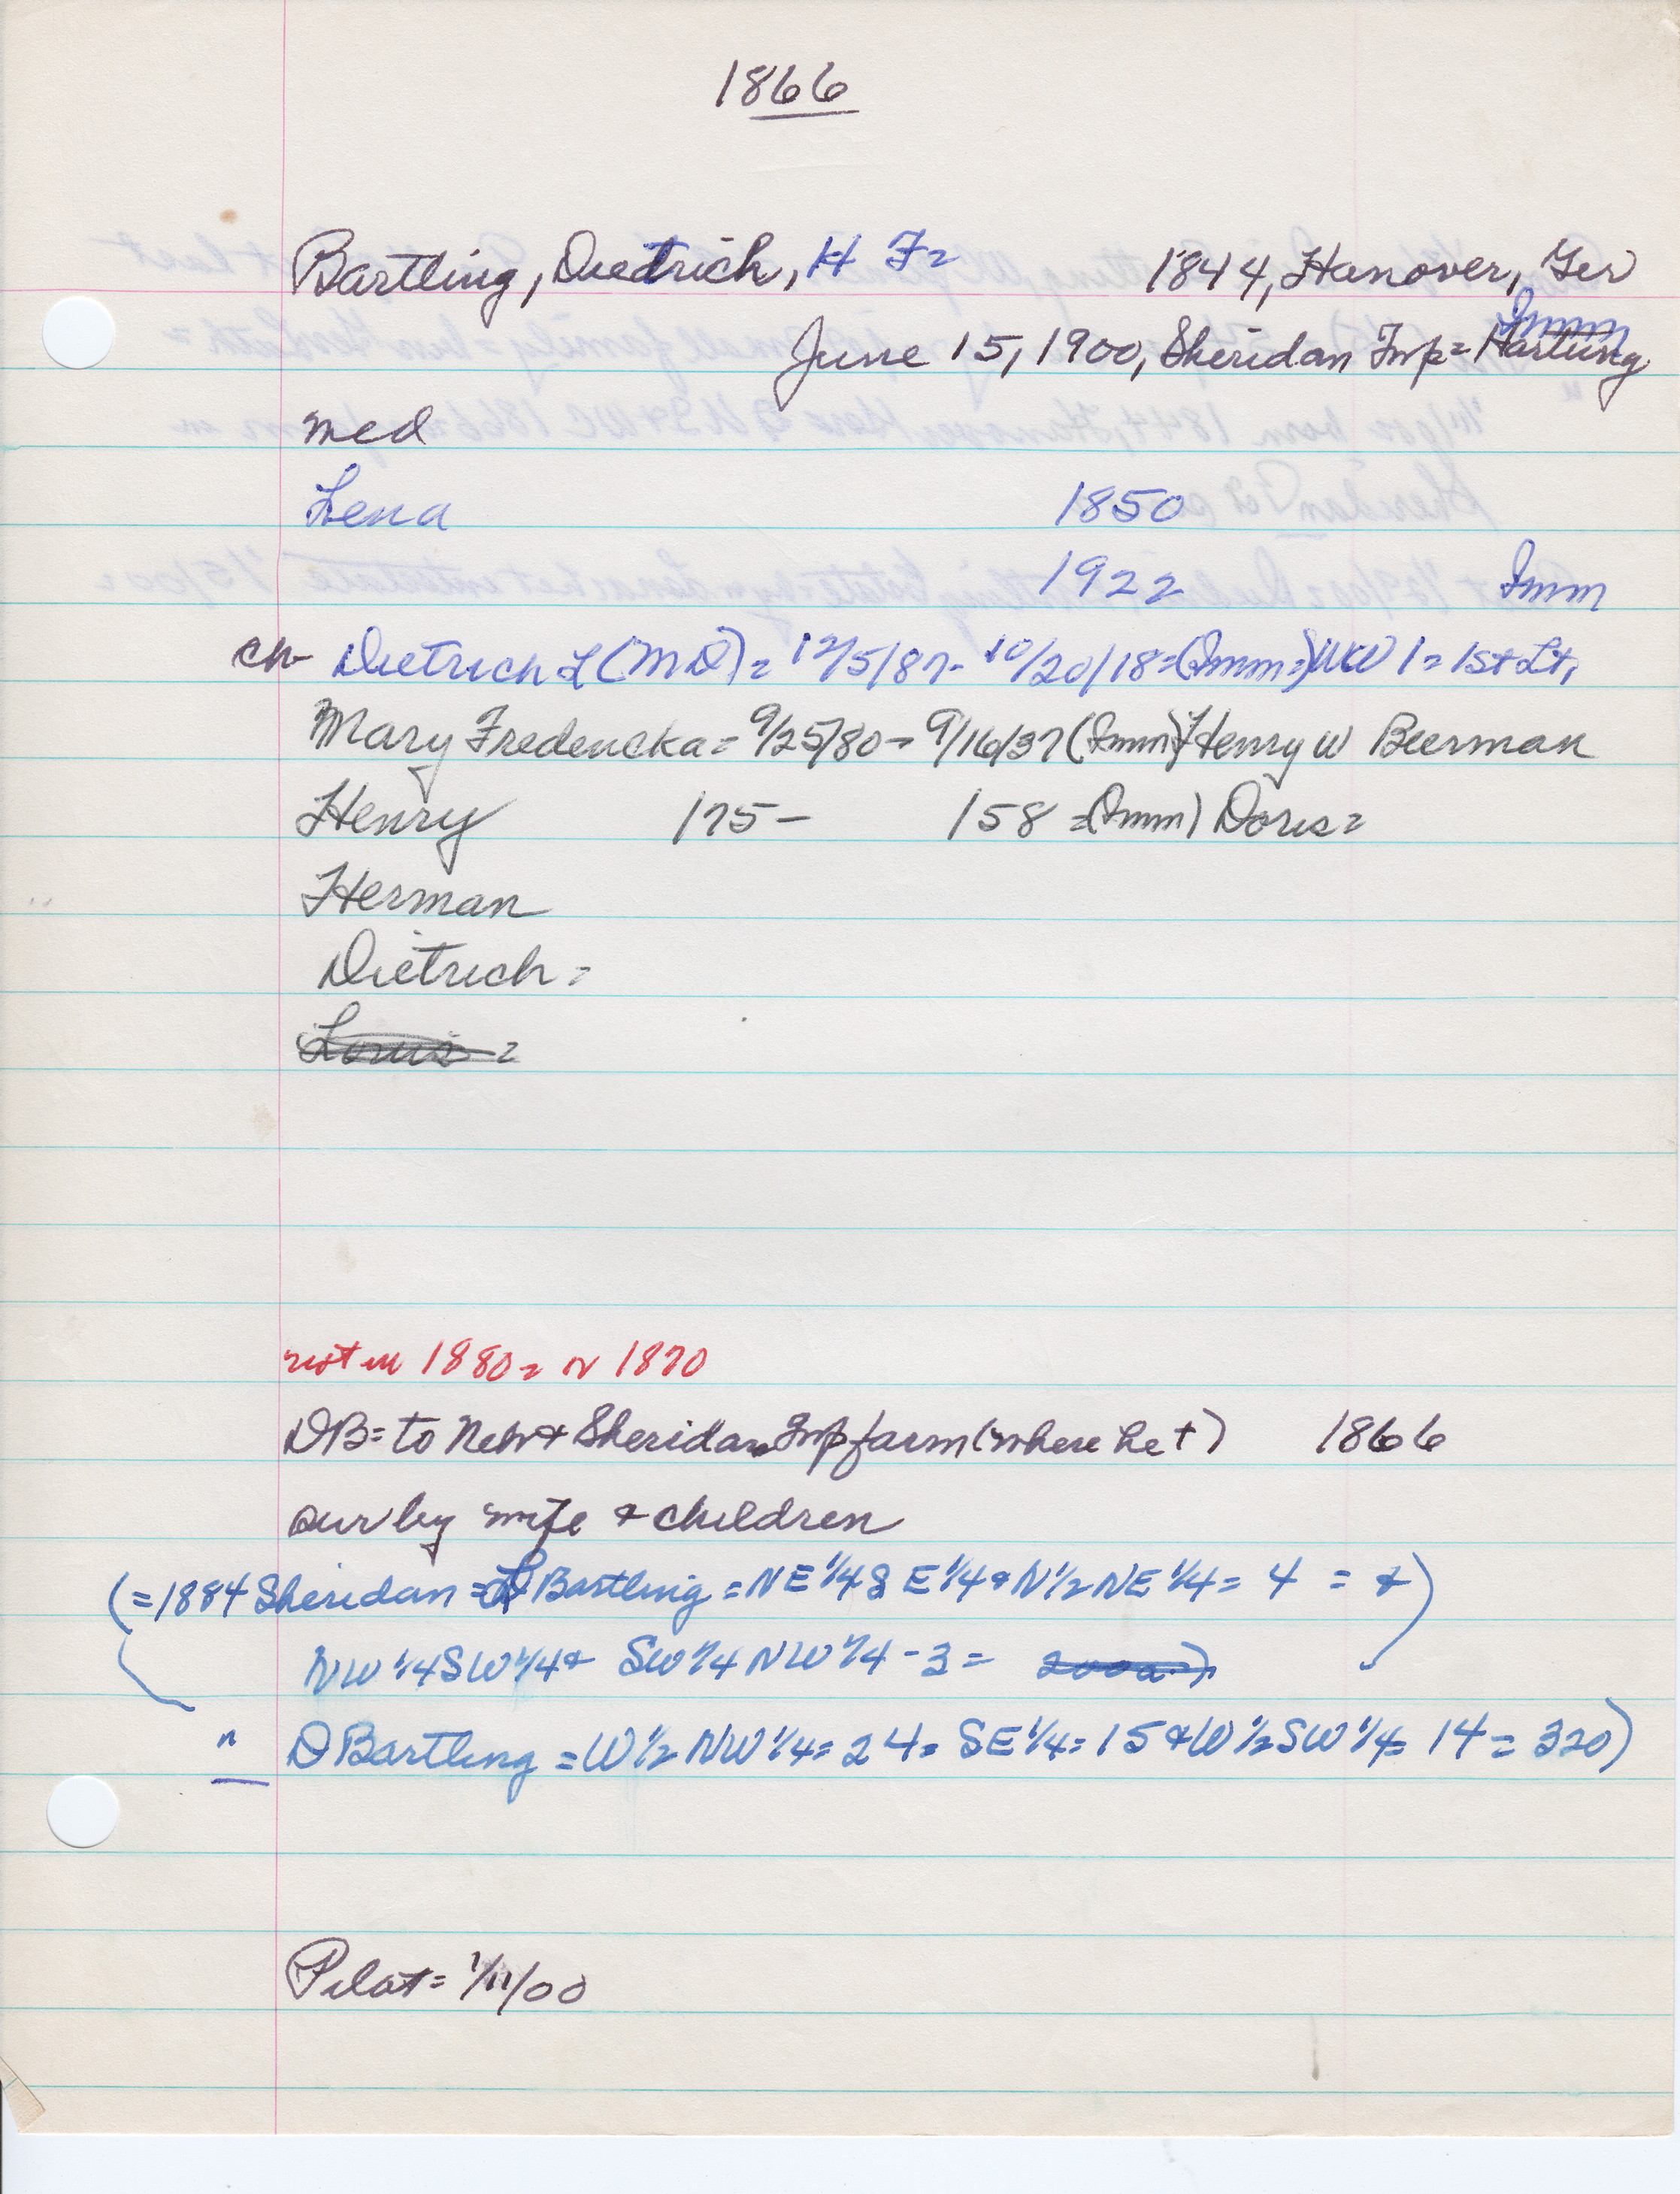 1866
Bartling, Diedrich, H F= 1844, Hanover, Ger
Imm
June 15, 1900, Sheridan Twp= Hartung
med
Lena 1850
1922 Imm
ch- Dietrich L (MD)= 12/5/87- 10/20/18=(Imm=) WW 1= 1st Lt,
Mary Fredericka= 9/25/80- 9/16/37 (Imm) Henry W Beerman
Henry 175- 158 =(Imm) Doris=
Herman
Dietrich=
Louis=
not in 1880= or 1870
DB= to Neb + Sheridan Twp farm (where he †) 1866
sur by wife & children
(=1884 Sheridan = Bartling = NE 1/4 SE 1/4 & N 1/2 NE 1/4 = 4 = &)
NW 1/4 SW 1/4 & SW 1/4 NW 1/4 - 3 = 200a.)
" D Bartling = W 1/2 NW 1/4= 24= SE 1/4= 15 & W 1/2 SW 1/4= 14 = 320)
Pilot= 1/11/00